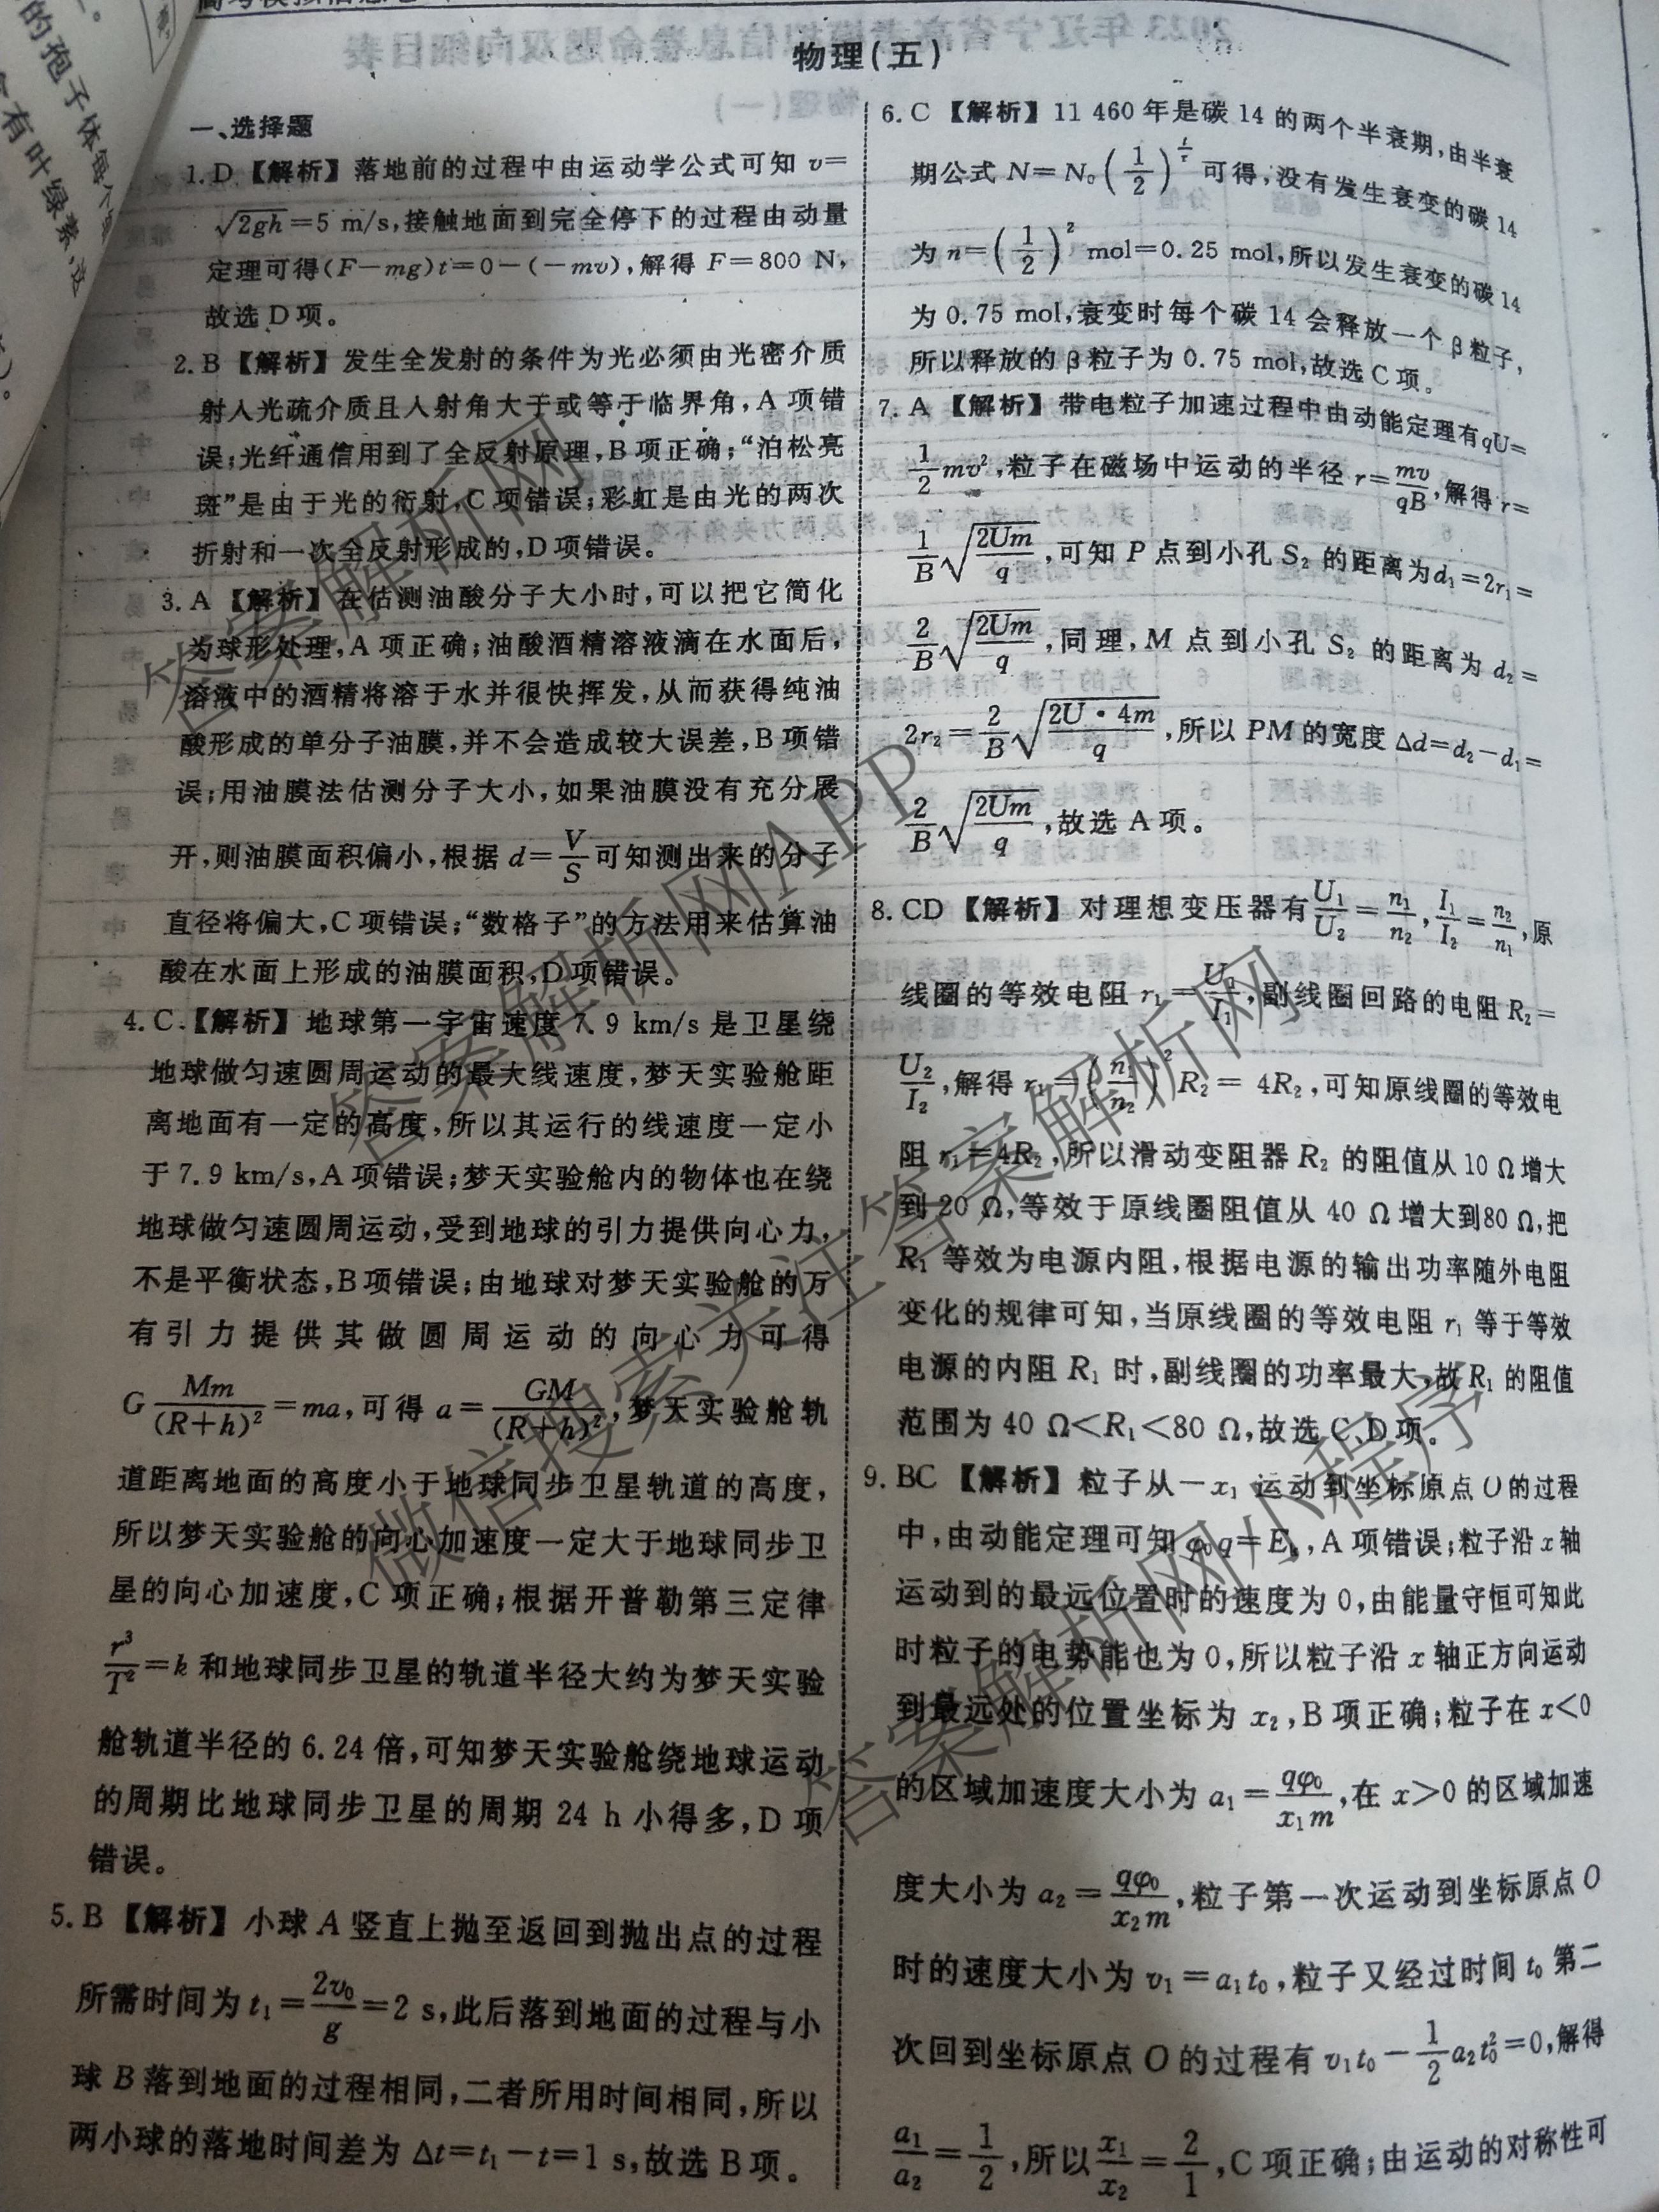 物理(五)
一、选择题
1. D 【解析】落地前的过程中由运动学公式可知 v=
√2gh=5 m/s,接触地面到完全停下的过程由动量
定理可得(F-mg)t=0-(-mv),解得 F=800 N,
故选 D 项。
2. B 【解析】发生全发射的条件为光必须由光密介质
射入光疏介质且入射角大于或等于临界角,A 项错
误;光纤通信用到了全反射原理,B 项正确;“泊松亮
斑”是由于光的衍射,C 项错误;彩虹是由光的两次
折射和一次全反射形成的,D 项错误。
3. A 【解析】在估测油酸分子大小时,可以把它简化
为球形处理,A 项正确;油酸酒精溶液滴在水面后,
溶液中的酒精将溶于水并很快挥发,从而获得纯油
酸形成的单分子油膜,并不会造成较大误差,B 项错
误;用油膜法估测分子大小,如果油膜没有充分展
开,则油膜面积偏小,根据 d=V/S 可知测出来的分子
直径将偏大,C 项错误;“数格子”的方法用来估算油
酸在水面上形成的油膜面积,D 项错误。
4. C 【解析】地球第一宇宙速度 7.9 km/s 是卫星绕
地球做匀速圆周运动的最大线速度,梦天实验舱距
离地面有一定的高度,所以其运行的线速度一定小
于 7.9 km/s,A 项错误;梦天实验舱内的物体也在绕
地球做匀速圆周运动,受到地球的引力提供向心力,
不是平衡状态,B 项错误;由地球对梦天实验舱的万
有引力提供其做圆周运动的向心力可得
G Mm/(R+h)²=ma,可得 a=GM/(R+h)²,梦天实验舱轨
道距离地面的高度小于地球同步卫星轨道的高度,
所以梦天实验舱的向心加速度一定大于地球同步卫
星的向心加速度,C 项正确;根据开普勒第三定律
r³/T²=k 和地球同步卫星的轨道半径大约为梦天实验
舱轨道半径的 6.24 倍,可知梦天实验舱绕地球运动
的周期比地球同步卫星的周期 24 h 小得多,D 项
错误。
5. B 【解析】小球 A 竖直上抛至返回到抛出点的过程
所需时间为 t₁=2v₀/g=2 s,此后落到地面的过程与小
球 B 落到地面的过程相同,二者所用时间相同,所以
两小球的落地时间差为 Δt=t₁-t=1 s,故选 B 项。
6. C 【解析】11 460 年是碳 14 的两个半衰期,由半衰
期公式 N=N₀(1/2)^(t/τ) 可得,没有发生衰变的碳 14
为 n=(1/2)² mol=0.25 mol,所以发生衰变的碳 14
为 0.75 mol,衰变时每个碳 14 会释放一个 β 粒子,
所以释放的 β 粒子为 0.75 mol,故选 C 项。
7. A 【解析】带电粒子加速过程中由动能定理有 qU=
1/2 mv²,粒子在磁场中运动的半径 r=mv/qB,解得 r=
1/B √(2Um/q),可知 P 点到小孔 S₂ 的距离为 d₁=2r₁=
2/B √(2Um/q),同理,M 点到小孔 S₂ 的距离为 d₂=
2r₂=2/B √(2U·4m/q),所以 PM 的宽度 Δd=d₂-d₁=
2/B √(2Um/q),故选 A 项。
8. CD 【解析】对理想变压器有 U₁/U₂=n₁/n₂,I₁/I₂=n₂/n₁,原
线圈的等效电阻 r₁=U₁/I₁,副线圈回路的电阻 R₂=
U₂/I₂,解得 r₁=(n₁/n₂)² R₂=4R₂,可知原线圈的等效电
阻 r₁=4R₂,所以滑动变阻器 R₂ 的阻值从 10 Ω 增大
到 20 Ω,等效于原线圈阻值从 40 Ω 增大到 80 Ω,把
R₁ 等效为电源内阻,根据电源的输出功率随外电阻
变化的规律可知,当原线圈的等效电阻 r₁ 等于等效
电源的内阻 R₁ 时,副线圈的功率最大,故 R₁ 的阻值
范围为 40 Ω<R₁<80 Ω,故选 C、D 项。
9. BC 【解析】粒子从 -x₁ 运动到坐标原点 O 的过程
中,由动能定理可知 φ₀q=Eₖ,A 项错误;粒子沿 x 轴
运动到的最远位置时的速度为 0,由能量守恒可知此
时粒子的电势能也为 0,所以粒子沿 x 轴正方向运动
到最远处的位置坐标为 x₂,B 项正确;粒子在 x<0
的区域加速度大小为 a₁=qφ₀/x₁m,在 x>0 的区域加速
度大小为 a₂=qφ₀/x₂m,粒子第一次运动到坐标原点 O
时的速度大小为 v₁=a₁t₀,粒子又经过时间 t₀ 第二
次回到坐标原点 O 的过程有 v₁t₀-1/2 a₂t₀²=0,解得
a₁/a₂=1/2,所以 x₁/x₂=2/1,C 项正确;由运动的对称性可
答案解析网
答案解析网APP
微信搜索关注答案解析网
答案解析网小程序